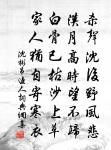 殺聲沈後野風悲
漢月高時望不歸
白骨已枯沙上草
家人猶自寄寒衣
沈彬弔邊人 詞典網書